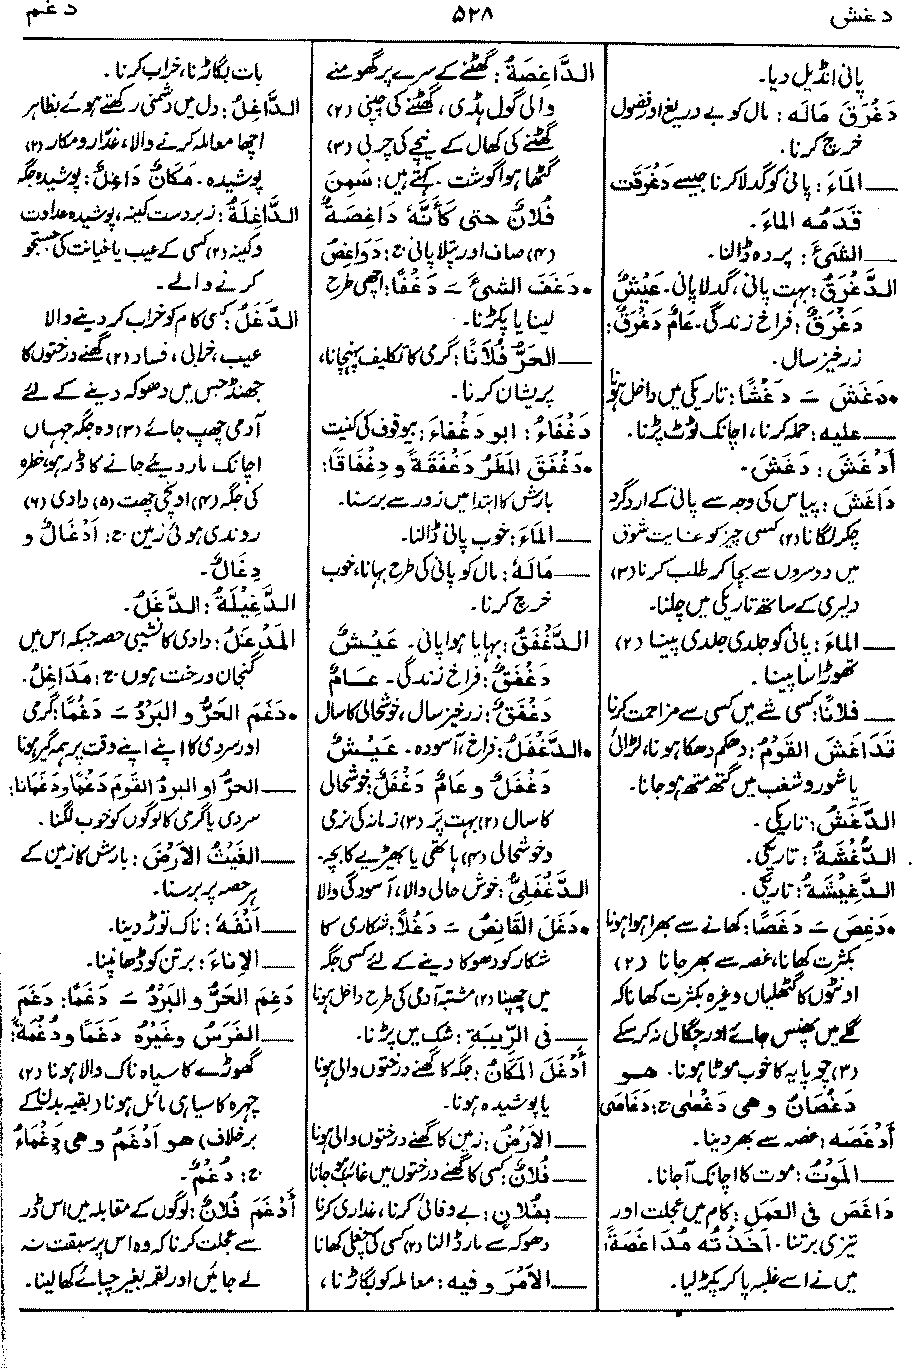 دغش
۵۲۸
دغم
پانی انڈیل دیا۔
دَغْرَقَ مَالَه: مال کو بے دریغ اور فضول
خرچ کرنا۔
ــــ المَاءَ: پانی کو گدلا کرنا جیسے دَغْرَقَت
قَدَمُه الماءَ۔
ــــ الشیْءَ: پردہ ڈالنا۔
الدَّغْرَقُ: بہت پانی، گدلا پانی۔ عَیْشٌ
دَغْرَقٌ: فراخ زندگی۔ عَامٌ دَغْرَقٌ:
زرخیز سال۔
•دَغَشَ ــَـ دَغْشًا: تاریکی میں داخل ہونا
ــــ علیه: حملہ کرنا، اچانک ٹوٹ پڑنا۔
أَدْغَشَ: دَغَشَ۔
دَاغَشَ: پیاس کی وجہ سے پانی کے ارد گرد
چکر لگانا (۲) کسی چیز کو غایت شوق
میں دوسروں سے بچا کر طلب کرنا (۳)
دلیری کے ساتھ تاریکی میں چلنا۔
ــــ الماءَ: پانی کو جلدی جلدی پینا (۲)
تھوڑا سا پینا۔
ــــ فلانًا: کسی شے میں کسی سے مزاحمت کرنا
تَدَاغَشَ القَوْمُ: دھکم دھکا ہونا، لڑائی
یا شور و شغب میں گتھم گتھ ہو جانا۔
الدَّغَشُ: تاریکی۔
الدُّغْشَةُ: تاریکی۔
الدَّغِیْشَةُ: تاریکی۔
•دَغِصَ ــَـ دَغَصًا: کھانے سے بھرا ہوا ہونا
بکثرت کھانا، غصہ سے بھر جانا (۲)
اونٹوں کا گٹھلیاں وغیرہ بکثرت کھانا کہ
گلے میں پھنس جائے اور جگالی نہ کر سکے
(۳) چوپایہ کا خوب موٹا ہونا۔ هو
دَغْصَانٌ و هی دَغْصٰی ج: دَغَاصٰی
أَدْغَصَه: غصہ سے بھر دینا۔
ــــ المَوْتُ: موت کا اچانک آجانا۔
دَاغَصَ فی العَمَلِ: کام میں عجلت اور
تیزی برتنا۔ أَخَذْتُه مُدَاغَصَةً:
میں نے اسے غلبہ پا کر پکڑ لیا۔
الدَّاغِصَةُ: گھٹنے کے سرے پر گھومنے
والی گول ہڈی، گھٹنے کی چپنی (۲)
گھٹنے کی کھال کے نیچے کی چربی (۳)
گٹھا ہوا گوشت۔ کہتے ہیں: سَمِنَ
فُلَانٌ حتی كَأَنَّهُ دَاغِصَةٌ
(۴) صاف اور پتلا پانی ج: دَوَاغِصُ
•دَغَفَ الشیْءَ ــَـ دَغْفًا: اچھی طرح
لینا یا پکڑنا۔
ــــ الحَرُّ فُلَانًا: گرمی کا تکلیف پہنچانا،
پریشان کرنا۔
دَغْفَاءُ: ابو دَغْفَاءَ: بیوقوف کی کنیت
•دَغْفَقَ المَطَرُ دَغْفَقَةً و دِغْفَاقًا:
بارش کا ابتدا میں زور سے برسنا۔
ــــ الماءَ: خوب پانی ڈالنا۔
ــــ مَالَهُ: مال کو پانی کی طرح بہانا، خوب
خرچ کرنا۔
الدَّغْفَقُ: بہایا ہوا پانی۔ عَیْشٌ
دَغْفَقٌ: فراخ زندگی۔ عَامٌ
دَغْفَقٌ: زرخیز سال، خوشحالی کا سال
•الدَّغْفَلُ: فراخ، آسودہ۔ عَیْشٌ
دَغْفَلٌ و عَامٌ دَغْفَلٌ: خوشحالی
کا سال (۲) بہت پَر (۳) زمانہ کی نرمی
و خوشحالی (۴) ہاتھی یا بھیڑیے کا بچہ۔
الدَّغْفَلِیُّ: خوش حالی والا، آسودگی والا
•دَغَلَ القَانِصُ ــَـ دَغْلًا: شکاری کا
شکار کو دھوکا دینے کے لئے کسی جگہ
میں چھپنا (۲) مشتبہ آدمی کی طرح داخل ہونا
ــــ فی الرِّیبَةِ: شک میں پڑنا۔
أَدْغَلَ المَکَانُ: جگہ کا گھنے درختوں والی ہونا
یا پوشیدہ ہونا۔
ــــ الأرْضُ: زمین کا گھنے درختوں والی ہونا
ــــ فُلَانٌ: کسی کا گھنے درختوں میں غائب ہو جانا
ــــ بِفُلَانٍ: بے وفائی کرنا، غداری کرنا
دھوکہ سے مار ڈالنا (۲) کسی کی چغلی کھانا
ــــ الأمْرَ و فیه: معاملہ کو بگاڑنا،
بات بگاڑنا، خراب کرنا۔
الدَّاغِلُ: دل میں دشمنی رکھتے ہوئے بظاہر
اچھا معاملہ کرنے والا، غدّار و مکار (۲)
پوشیدہ۔ مَکَانٌ دَاغِلٌ: پوشیدہ جگہ
الدَّاغِلَةُ: زبردست کینہ، پوشیدہ عداوت
و کینہ (۲) کسی کے عیب یا خیانت کی جستجو
کرنے والے۔
الدَّغَلُ: کسی کام کو خراب کر دینے والا
عیب، خرابی، فساد (۲) گھنے درختوں کا
جھنڈ جس میں دھوکہ دینے کے لئے
آدمی چھپ جائے (۳) وہ جگہ جہاں
اچانک مار دیئے جانے کا ڈر ہو، خطرہ
کی جگہ (۴) اونچی چھت (۵) وادی (۶)
روندی ہوئی زمین ج: أدْغَالٌ و
دِغَالٌ۔
الدَّغِیْلَةُ: الدَّغَلُ۔
المَدْغَلُ: وادی کا نشیبی حصہ جبکہ اس میں
گنجان درخت ہوں ج: مَدَاغِلُ۔
•دَغَمَ الحَرُّ و البَرْدُ ــَـ دَغْمًا: گرمی
اور سردی کا اپنے اپنے وقت پر ہمہ گیر ہونا
ــــ الحرُّ او البردُ القَوْمَ دَغْمًا و دَغَمَانًا:
سردی یا گرمی کا لوگوں کو خوب لگنا۔
ــــ الغَیْثُ الأرْضَ: بارش کا زمین کے
ہر حصہ پر برسنا۔
ــــ أَنْفَهُ: ناک توڑ دینا۔
ــــ الإِنَاءَ: برتن کو ڈھانپنا۔
دَغِمَ الحَرُّ و البَرْدُ ــَـ دَغَمًا: دَغَمَ
ــــ الفَرَسُ وغَیْرُہ دَغَمًا و دُغْمَةً:
گھوڑے کا سیاہ ناک والا ہونا (۲)
چہرہ کا سیاہی مائل ہونا (بقیہ بدن کے
برخلاف) هو أدْغَمُ و هی دَغْمَاءُ
ج: دُغْمٌ۔
أَدْغَمَ فُلَانٌ: لوگوں کے مقابلہ میں اس ڈر
سے عجلت کرنا کہ وہ اس پر سبقت نہ
لے جائیں اور لقمہ بغیر چبائے کھا لینا۔